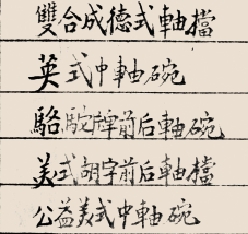 雙合成德式軸擋
英式中軸碗
駱駝牌前后軸碗
美式胡字前后軸擋
公益美式中軸碗